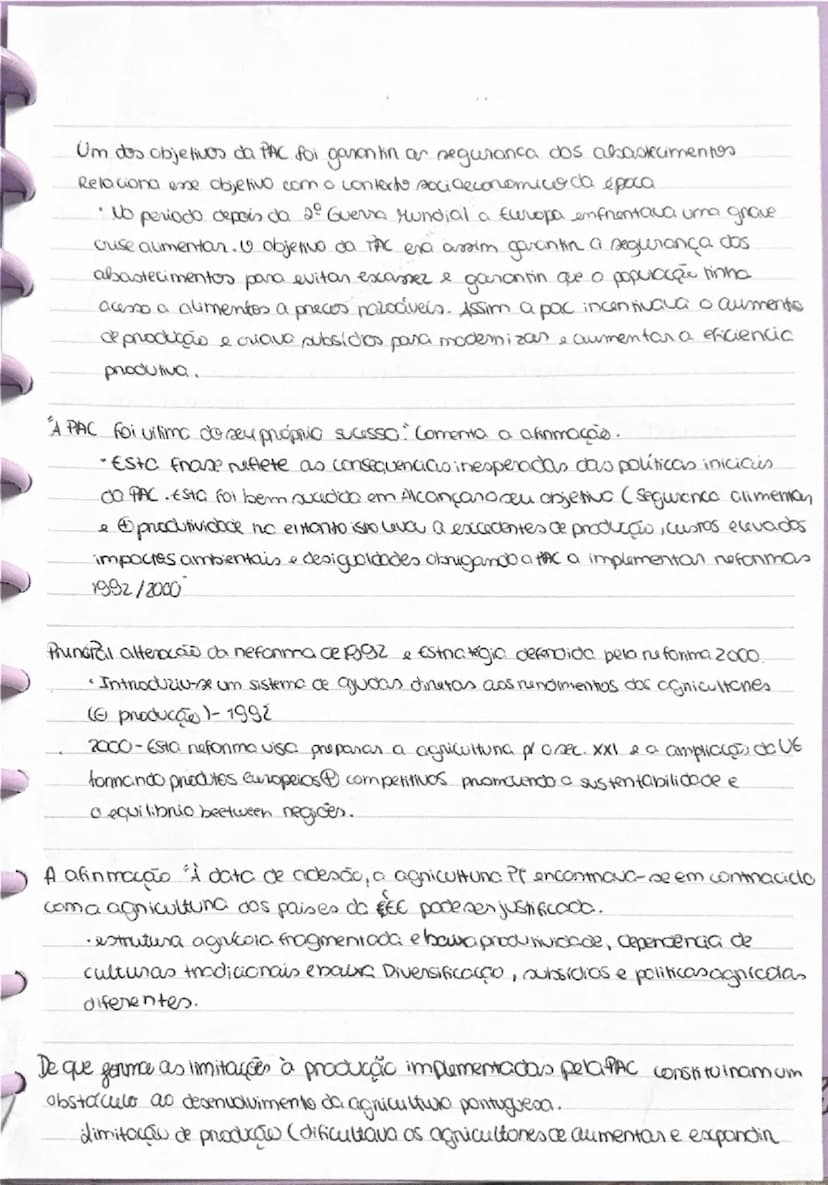 Um dos objetivos da PAC foi garantir a segurança dos abastecimentos
Relaciona esse objetivo com o contexto socioeconomico da época
• No periodo depois da 2º Guerra Mundial a Europa enfrentava uma grave
crise alimentar. O objetivo da PAC era assim garantir a segurança dos
abastecimentos para evitar escassez e garantir que a população tinha
acesso a alimentos a preços razoáveis. Assim a pac incentivava o aumento
de produção e criava subsídios para modernizar e aumentar a eficiencia
produtiva.
"A PAC foi vitima do seu próprio sucesso." Comenta a afirmação.
• Esta frase reflete as consequencias inesperadas das políticas iniciais
da PAC. Esta foi bem sucedida em Alcançar o seu objetivo (Segurança alimentar
e ⊕ produtividade no entanto isto levou a excedentes de produção, custos elevados
impactes ambientais e desigualdades obrigando a PAC a implementar reformas
1992/2000
Principal alteração da reforma de 1992 e Estratégia defendida pela reforma 2000.
• Introduziu-se um sistema de ajudas diretas aos rendimentos dos agricultores
(⊖ produção) - 1992
2000 - Esta reforma visa preparar a agricultura p/ o sec. XXI e a ampliação da UE
tornando produtos Europeios ⊕ competitivos promovendo a sustentabilidade e
o equilibrio beetween regiões.
A afirmação "À data de adesão, a agricultura PT encontrava-se em contraciclo
com a agricultura dos paises da CEE pode ser justificada.
• estrutura agrícola fragmentada e baixa produtividade, dependência de
culturas tradicionais e baixa Diversificação, subsídios e politicas agrícolas
diferentes.
De que forma as limitações à produção implementadas pela PAC constituiram um
obstáculo ao desenvolvimento da agricultura portuguesa.
Limitação de produção (dificultava os agricultores de aumentar e expandir